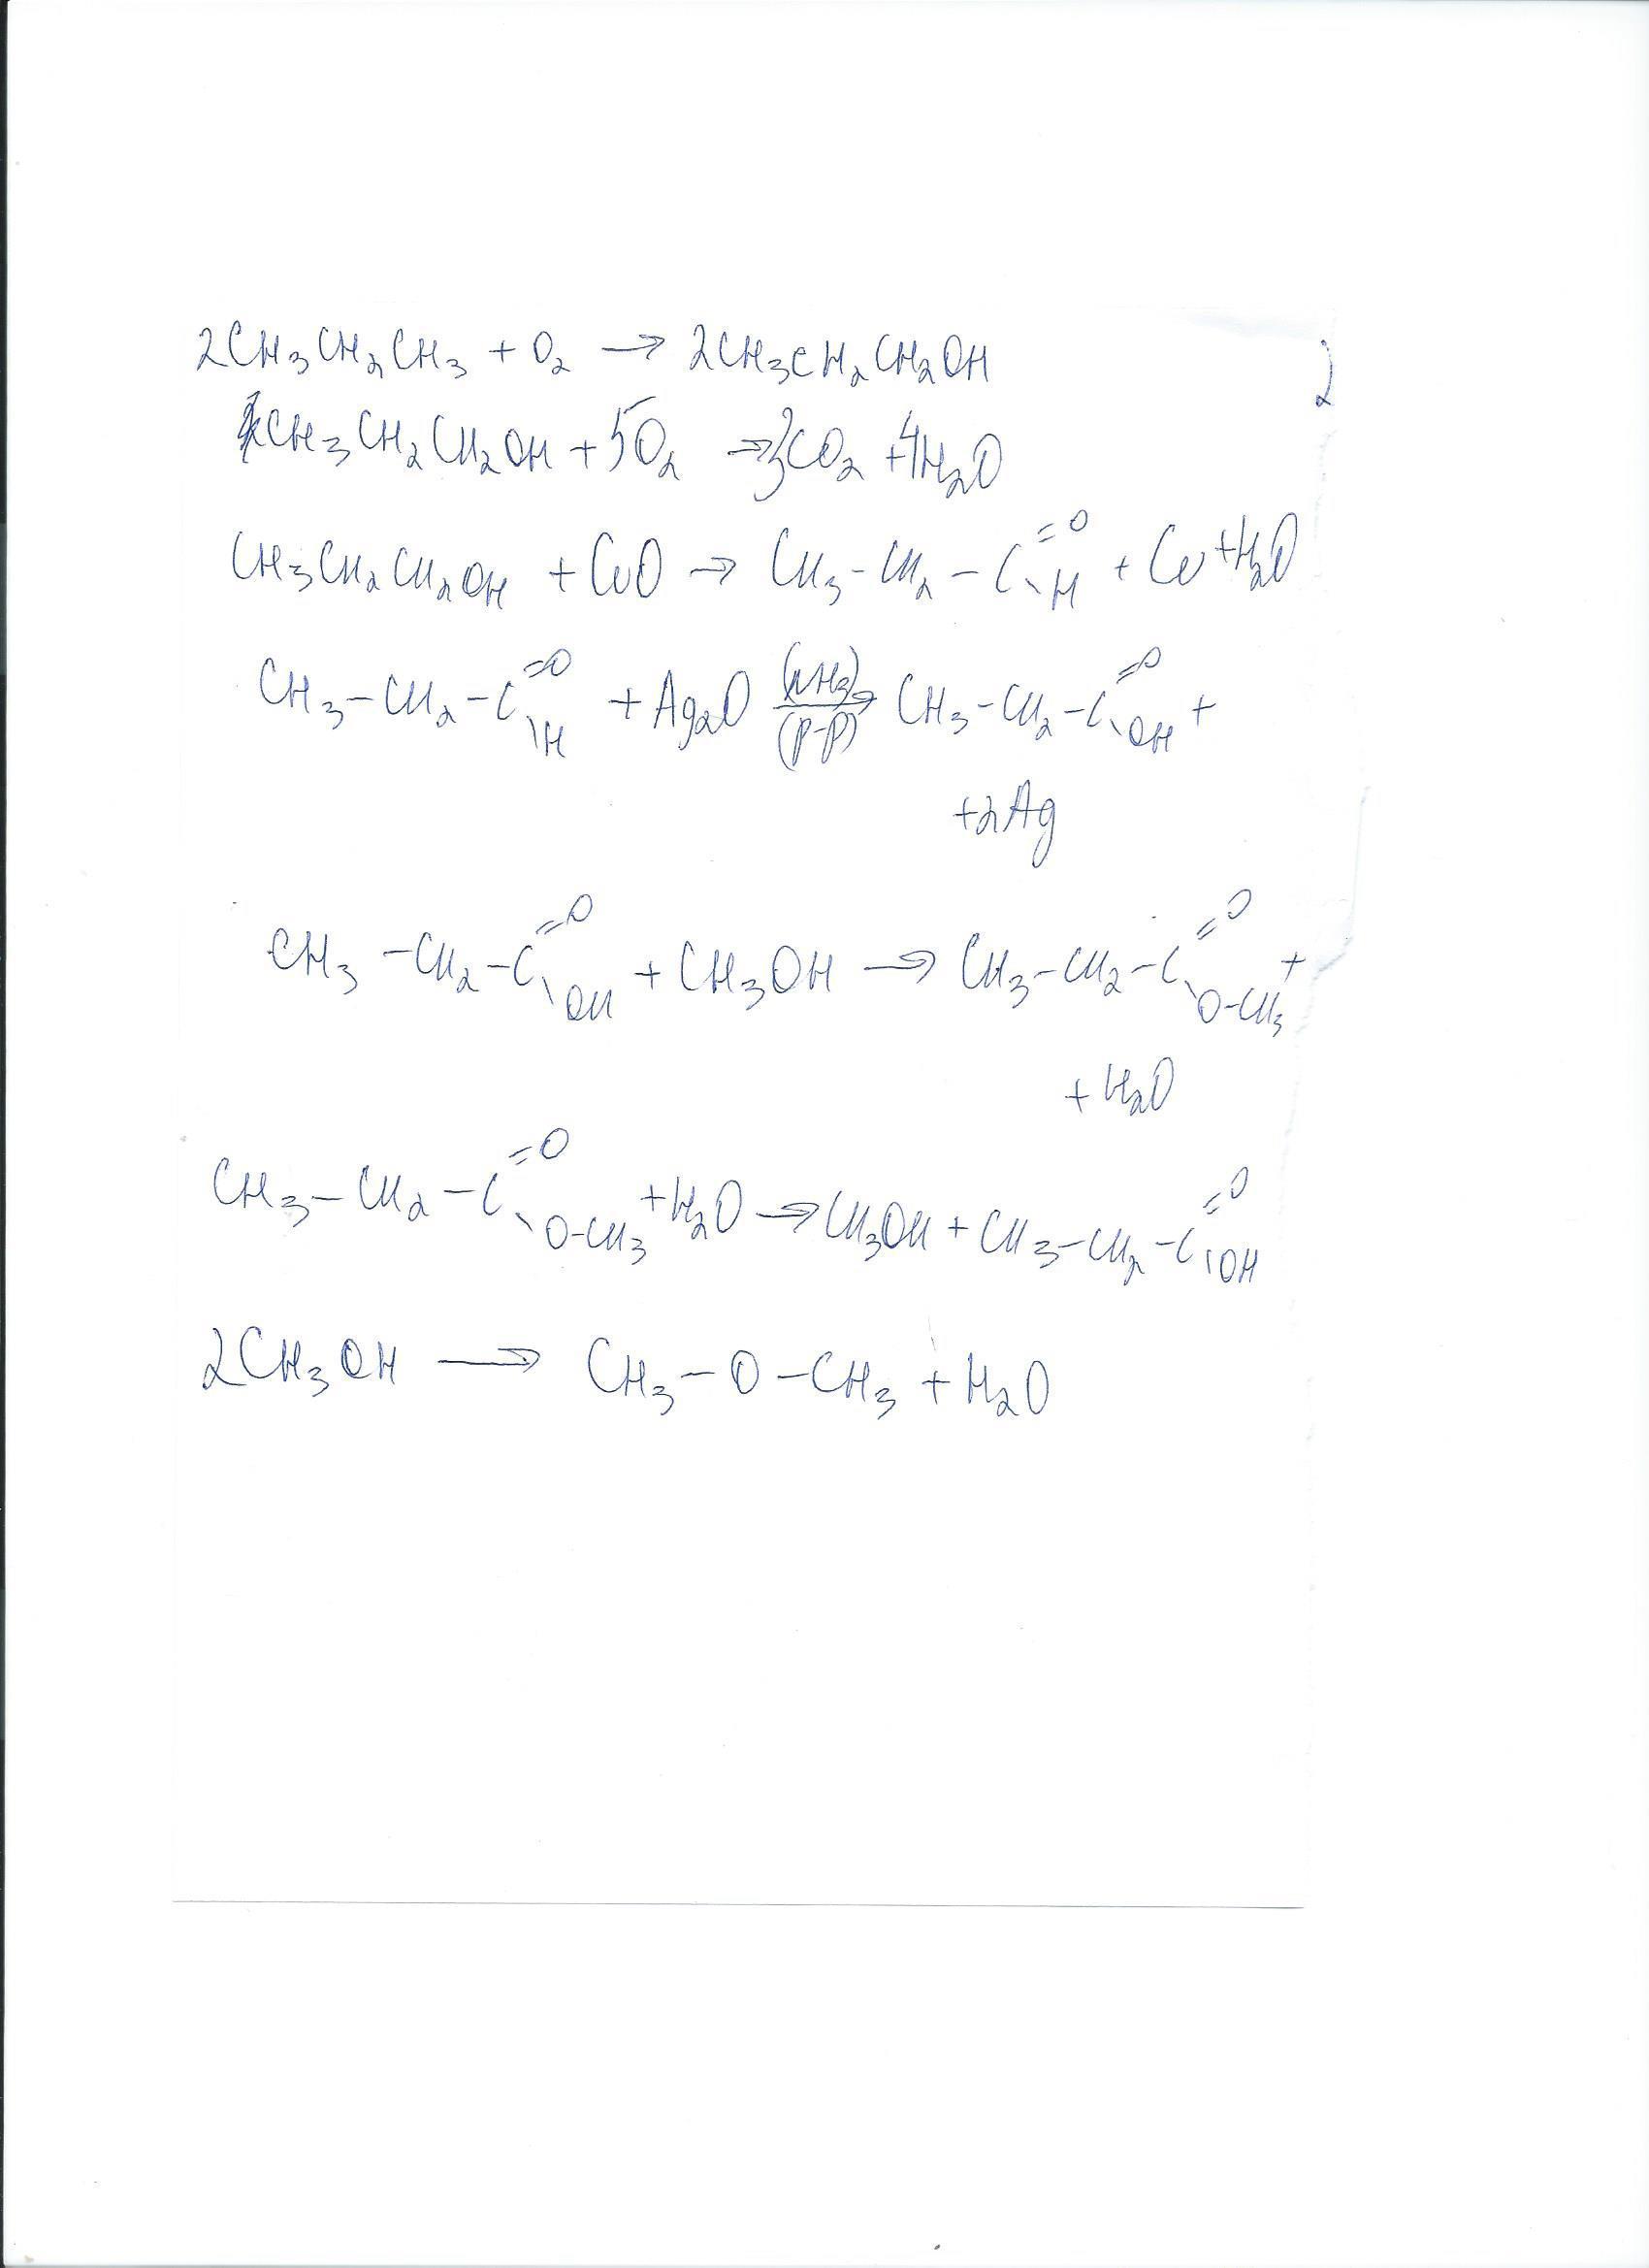 2CH₃CH₂CH₃ + O₂ → 2CH₃CH₂CH₂OH
CH₃CH₂CH₂OH + 5O₂ → 3CO₂ + 4H₂O
CH₃CH₂CH₂OH + CuO → CH₃-CH₂-C=O\H + Cu + H₂O
CH₃-CH₂-C=O\H + Ag₂O (NH₃) → (р-р) CH₃-CH₂-C=O\OH +
+2Ag
CH₃-CH₂-C=O\OH + CH₃OH → CH₃-CH₂-C=O\O-CH₃ +
+ H₂O
CH₃-CH₂-C=O\O-CH₃ + H₂O → CH₃OH + CH₃-CH₂-C=O\OH
2CH₃OH → CH₃-O-CH₃ + H₂O